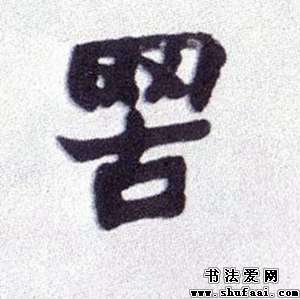 罟
书法爱网
www.shufaai.com